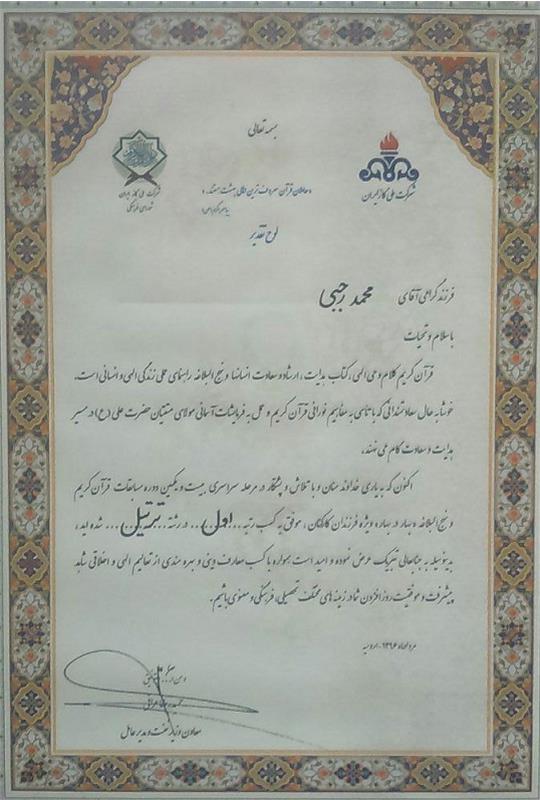 بسمه تعالی
شرکت ملی گاز ایران
شرکت ملی گاز ایران
شورای فرهنگی
حاملان قرآن معروف ترین اهالی بهشت هستند.
پیامبر اکرم (ص)
لوح تقدیر
فرزند گرامی آقای محمد رجبی
با سلام و تحیات
قرآن کریم کلام وحی الهی، کتاب هدایت، ارشاد و سعادت انسانها و نهج البلاغه راهنمای عملی زندگی الهی و انسانی است.
خوشا به حال سعادتمندانی که با تاسی به مفاهیم نورانی قرآن کریم و عمل به فرمایشات آسمانی مولای متقیان حضرت علی (ع) در مسیر
هدایت و سعادت گام می نهند.
اکنون که به یاری خداوند منان و با تلاش و پشتکار در مرحله سراسری بیست و یکمین دوره مسابقات قرآن کریم
و نهج البلاغه «بهار در بهار» ویژه فرزندان کارکنان، موفق به کسب رتبه ...اول... در رشته ...ترتیل... شده اید،
بدینوسیله به جنابعالی تبریک عرض نموده و امید است همواره با کسب معارف دینی و بهره مندی از تعالیم الهی و اخلاقی شاهد
پیشرفت و موفقیت روز افزون شما در زمینه های مختلف تحصیلی، فرهنگی و معنوی باشیم.
مردادماه ۱۳۹۶ - ارومیه
حمیدرضا عراقی
معاون وزیر نفت و مدیرعامل